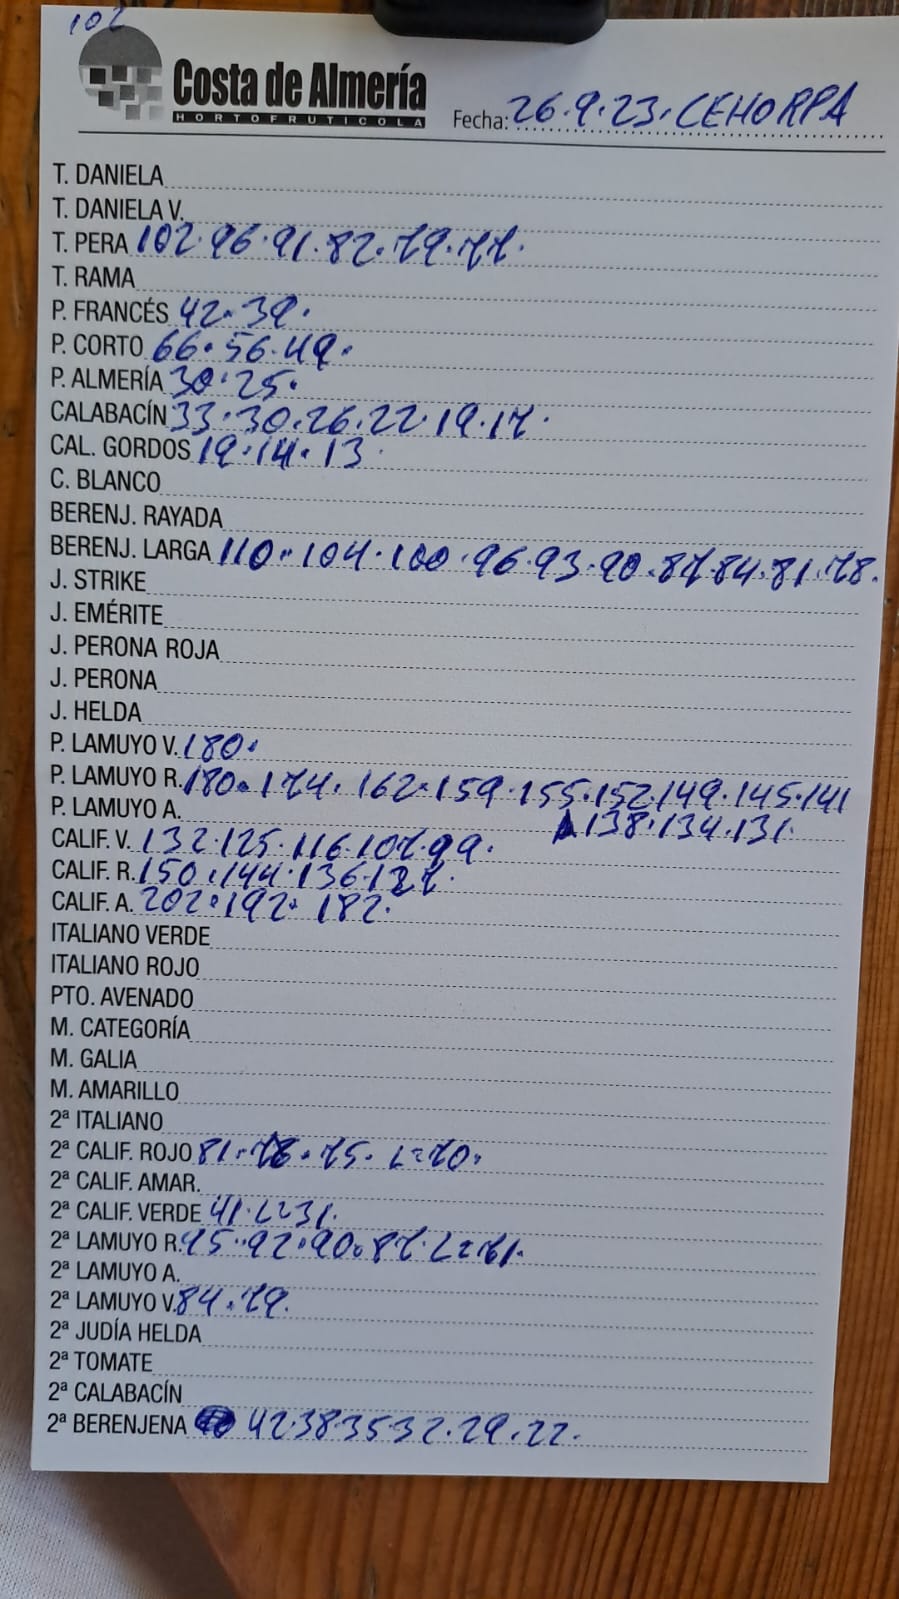 102
Costa de Almería
HORTOFRUTICOLA
Fecha: 26.9.23. CEHORPA
T. DANIELA
T. DANIELA V.
T. PERA 102.96.91.82.79.77.
T. RAMA
P. FRANCÉS 42.39.
P. CORTO 66.56.49.
P. ALMERÍA 30.25.
CALABACÍN 33.30.26.22.19.17.
CAL. GORDOS 19.14.13.
C. BLANCO
BERENJ. RAYADA
BERENJ. LARGA 110.104.100.96.93.90.87.84.81.78.
J. STRIKE
J. EMÉRITE
J. PERONA ROJA
J. PERONA
J. HELDA
P. LAMUYO V. 180.
P. LAMUYO R. 180.174.162.159.155.152.149.145.141
P. LAMUYO A. 138.134.131.
CALIF. V. 132.125.116.107.99.
CALIF. R. 150.144.136.127.
CALIF. A. 202.192.182.
ITALIANO VERDE
ITALIANO ROJO
PTO. AVENADO
M. CATEGORÍA
M. GALIA
M. AMARILLO
2ª ITALIANO
2ª CALIF. ROJO 81.78.75.L=70.
2ª CALIF. AMAR.
2ª CALIF. VERDE 41.L=31.
2ª LAMUYO R. 95.92.90.87.L=71.
2ª LAMUYO A.
2ª LAMUYO V. 84.79.
2ª JUDÍA HELDA
2ª TOMATE
2ª CALABACÍN
2ª BERENJENA 42.38.35.32.29.22.